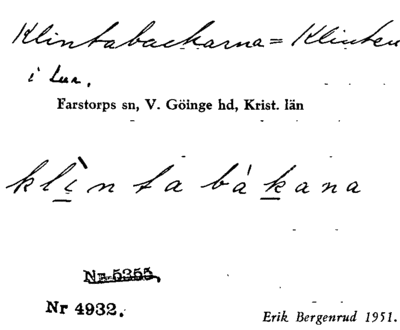 Klintabackarna = Klinten
i Lur.
Farstorps sn, V. Göinge hd, Krist. län
klìntabákana
Nr 5355.
Nr 4932.
Erik Bergenrud 1951.